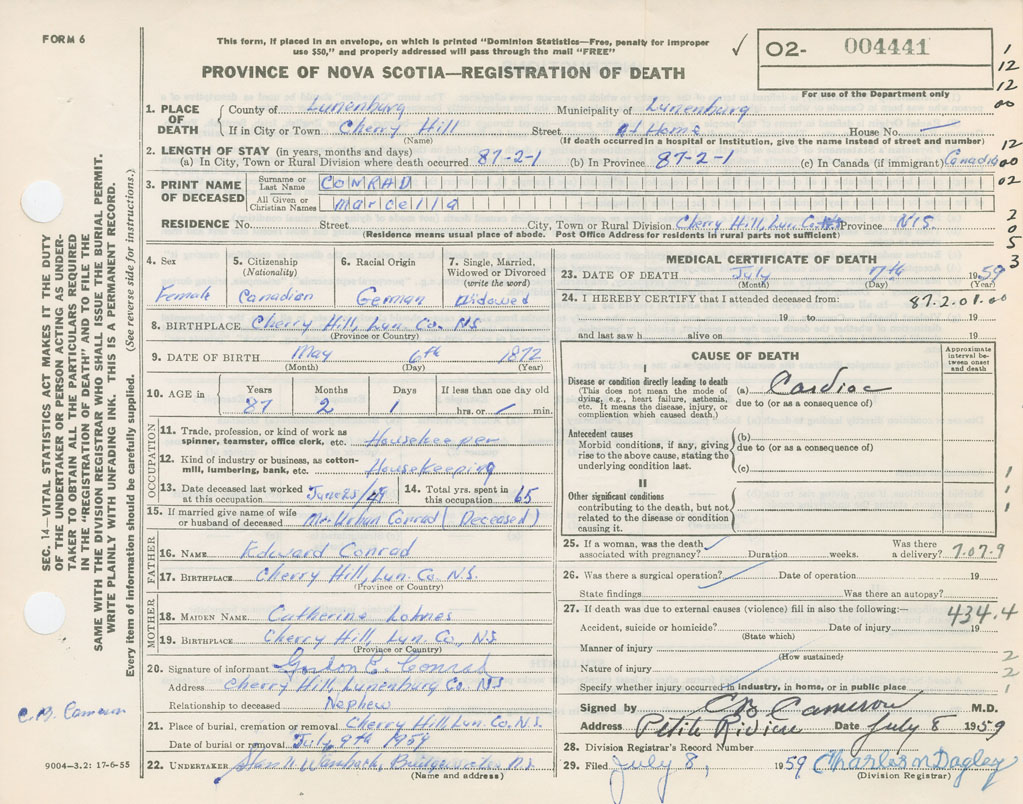 FORM 6
This form, if placed in an envelope, on which is printed "Dominion Statistics—Free, penalty for improper
use $50," and properly addressed will pass through the mail "FREE"
PROVINCE OF NOVA SCOTIA—REGISTRATION OF DEATH
✓ 02- 004441
For use of the Department only
1
12
12
00
12
00
02
2
0
5
3
1. PLACE OF DEATH
County of Lunenburg Municipality of Lunenburg
If in City or Town Cherry Hill Street At Home House No. —
(Name) (If death occurred in a hospital or institution, give the name instead of street and number)
2. LENGTH OF STAY (in years, months and days)
(a) In City, Town or Rural Division where death occurred 87-2-1 (b) In Province 87-2-1 (c) In Canada (if immigrant) Canadian
3. PRINT NAME OF DECEASED
Surname or Last Name CONRAD
All Given or Christian Names Marcella
RESIDENCE No. Street City, Town or Rural Division Cherry Hill, Lun. Co. N.S. Province N.S.
(Residence means usual place of abode. Post Office Address for residents in rural parts not sufficient)
4. Sex
Female
5. Citizenship
(Nationality)
Canadian
6. Racial Origin
German
7. Single, Married,
Widowed or Divorced
(write the word)
Widowed
8. BIRTHPLACE Cherry Hill, Lun. Co. NS
(Province or Country)
9. DATE OF BIRTH May 6th 1872
(Month) (Day) (Year)
10. AGE in
Years Months Days If less than one day old
87 2 1 hrs. or — min.
OCCUPATION
11. Trade, profession, or kind of work as
spinner, teamster, office clerk, etc. Housekeeper
12. Kind of industry or business, as cotton-
mill, lumbering, bank, etc. Housekeeping
13. Date deceased last worked
at this occupation June 25/49
14. Total yrs. spent in
this occupation 65
15. If married give name of wife
or husband of deceased Mr. Urban Conrad (Deceased)
FATHER
16. NAME Edward Conrad
17. BIRTHPLACE Cherry Hill, Lun. Co. N.S.
(Province or Country)
MOTHER
18. MAIDEN NAME Catherine Lohnes
19. BIRTHPLACE Cherry Hill, Lun. Co, N.S
(Province or Country)
20. Signature of informant Gordon E. Conrad
Address Cherry Hill, Lunenburg Co. NS
Relationship to deceased Nephew
21. Place of burial, cremation or removal Cherry Hill, Lun. Co. N.S.
Date of burial or removal July 9th 1959
22. UNDERTAKER
(Name and address)
MEDICAL CERTIFICATE OF DEATH
23. DATE OF DEATH July 7th 1959
(Month) (Day) (Year)
24. I HEREBY CERTIFY that I attended deceased from: 87.2.01.00
19 to 19
and last saw h alive on 19
CAUSE OF DEATH
Approximate
interval be-
tween onset
and death
I
Disease or condition directly leading to death
(This does not mean the mode of
dying, e.g., heart failure, asthenia,
etc. It means the disease, injury, or
complication which caused death.)
(a) Cardiac
due to (or as a consequence of)
Antecedent causes
Morbid conditions, if any, giving
rise to the above cause, stating the
underlying condition last.
(b)
due to (or as a consequence of)
(c)
II
Other significant conditions
contributing to the death, but not
related to the disease or condition
causing it.
1
1
1
25. If a woman, was the death
associated with pregnancy? Duration weeks. Was there
a delivery? 7.07.9
26. Was there a surgical operation? Date of operation 19
State findings Was there an autopsy?
27. If death was due to external causes (violence) fill in also the following:— 434.4
Accident, suicide or homicide? Date of injury 19
(State which)
Manner of injury 2
(How sustained)
Nature of injury 2
Specify whether injury occurred in industry, in home, or in public place 1
Signed by CB Cameron M.D.
Address Petite Riviere Date July 8 1959
28. Division Registrar's Record Number
29. Filed July 8, 1959 Charles N Dagley
(Division Registrar)
SEC. 14—VITAL STATISTICS ACT MAKES IT THE DUTY
OF THE UNDERTAKER OR PERSON ACTING AS UNDER-
TAKER TO OBTAIN ALL THE PARTICULARS REQUIRED
IN THE "REGISTRATION OF DEATH" AND TO FILE THE
SAME WITH THE DIVISION REGISTRAR WHO SHALL ISSUE THE BURIAL PERMIT.
WRITE PLAINLY WITH UNFADING INK. THIS IS A PERMANENT RECORD.
Every item of information should be carefully supplied. (See reverse side for instructions.)
C. B. Cameron
9004-3.2: 17-6-55